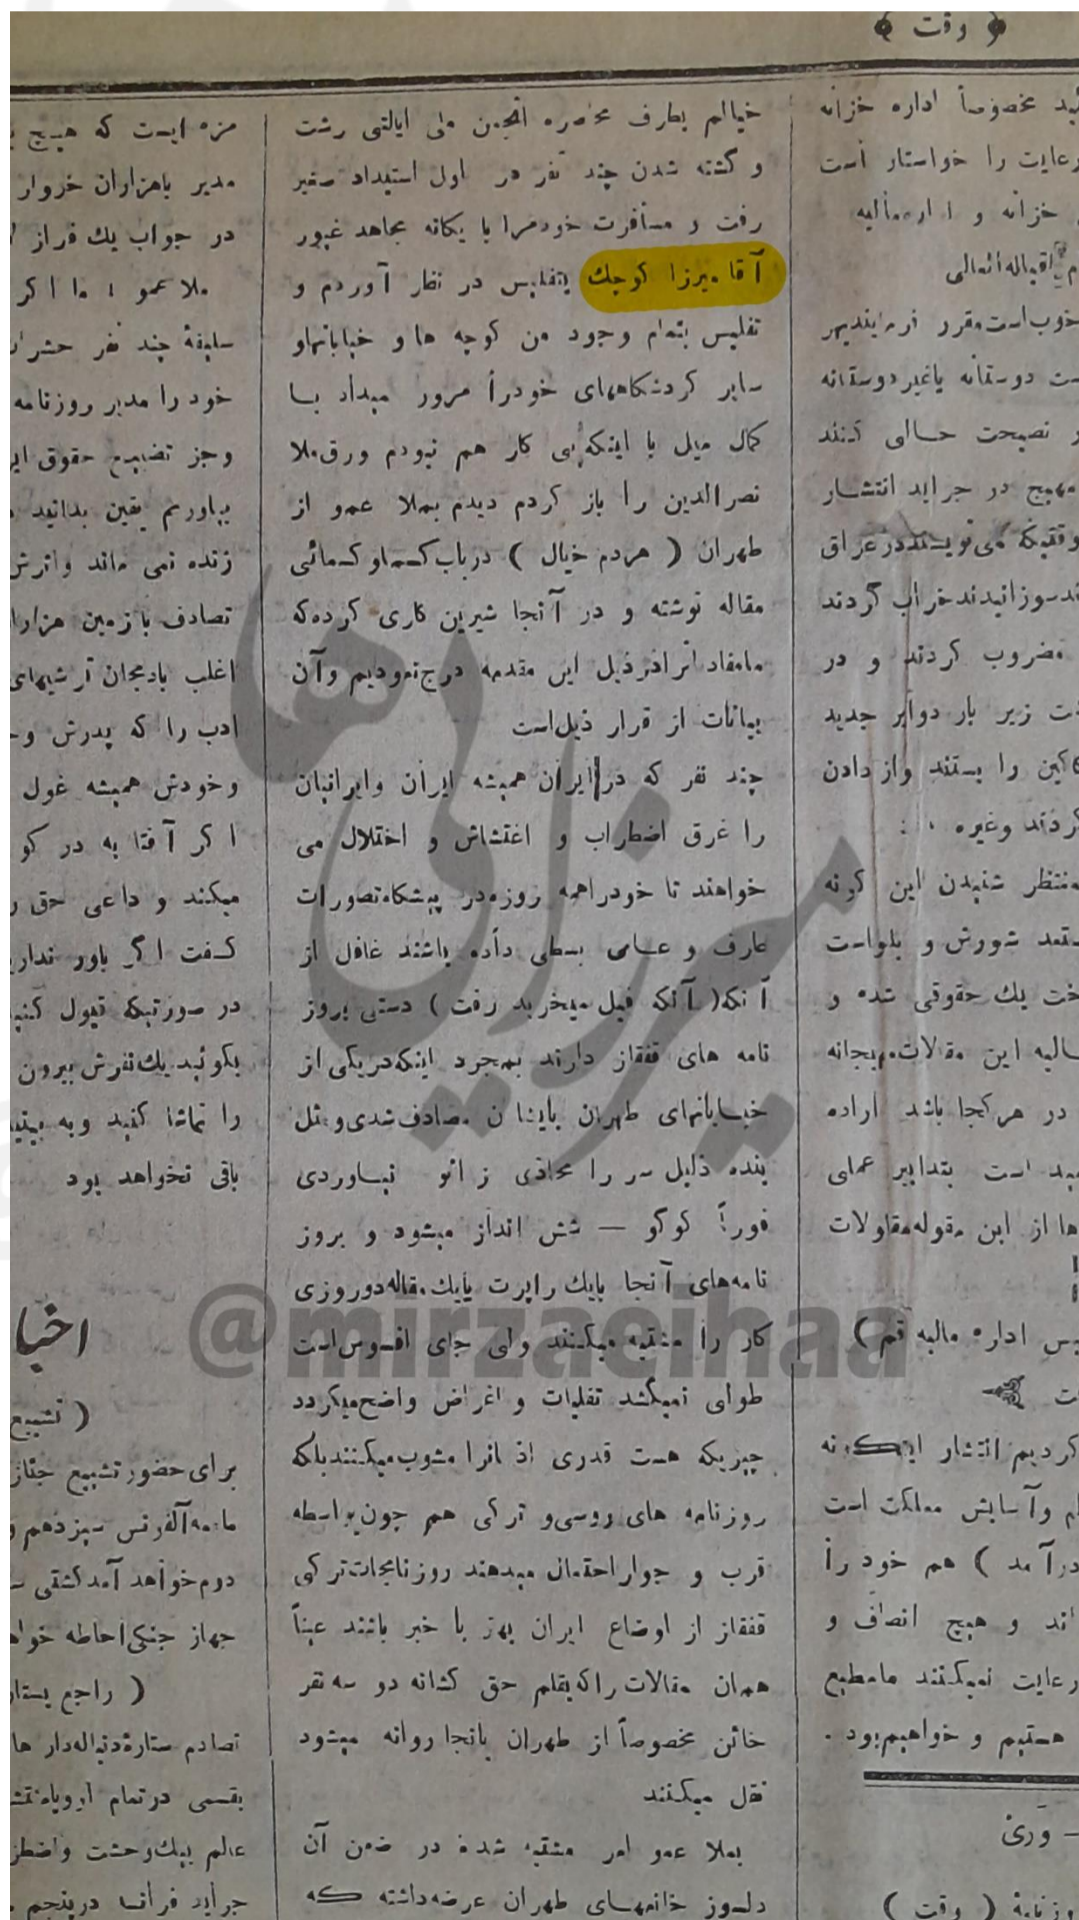 ﴿ وقت ﴾
ئید مخصوصاً اداره خزانه
رعایت را خواستار است
خزانه و اداره مالیه
م اقباله العالی
خوب است مقرر فرمایند بهر
ست دوستانه یا غیر دوستانه
ر نصیحت حالی کنند
مهیج در جراید انتشار
وقتیکه می نویسند در عراق
ند سوزانیدند خراب کردند
مضروب کردند و در
ت زیر بار دوایر جدید
کین را بستند و از دادن
کردند وغیره
منتظر شنیدن این گونه
ستعد شورش و بلواست
خت یك حقوقی شده و
سالیه این مقالات مهیجانه
در هر کجا باشد اراده
ید است بتدابیر عملی
ها از این مقوله مقاولات
یس اداره مالیه قم )
ت
کردیم انتشار اینگونه
م و آسایش مملکت است
درآمد ) هم خود را
اند و هیچ انصاف و
رعایت نمیکنند ما مطیع
هستیم و خواهیم بود .
ـ وری
وزنامۀ ( وقت )
خیالم بطرف محاصره انجمن ملی ایالتی رشت
و کشته شدن چند نفر در اول استبداد صغیر
رفت و مسافرت خودمرا با یگانه مجاهد غیور
آقا میرزا کوچك بتفلیس در نظر آوردم و
تفلیس بتمام وجود من کوچه ها و خیابانها و
سایر گردشگاههای خودرا مرور میداد با
کمال میل با اینکه بی کار هم نبودم ورق ملا
نصرالدین را باز کردم دیدم بملا عمو از
طهران ( هردم خیال ) در باب کسما و کسمائی
مقاله نوشته و در آنجا شیرین کاری کرده که
ما مفاد آنرا در ذیل این مقدمه درج نمودیم و آن
بیانات از قرار ذیل است
چند نفر که در ایران همیشه ایران و ایرانیان
را غرق اضطراب و اغتشاش و اختلال می
خواهند تا خودرا همه روزه در پیشگاه تصورات
عارف و عامی بسطی داده باشند غافل از
آنکه ( آنکه فیل میخرید رفت ) دستی بروز
نامه های قفقاز دارند بمجرد اینکه در یکی از
خیابانهای طهران بایشان مصادف شدی و مثل
بنده ذلیل سر را محاذی زانو نیاوردی
فوراً کوکو — شش انداز میشود و بروز
نامه های آنجا با یك راپرت یا یك مقاله دو روزی
کار را مشتبه میکنند ولی جای افسوس است
طولی نمیکشد تقلبات و اغراض واضح میگردد
چیزیکه هست قدری اذهانرا مشوب میکنند بلکه
روزنامه های روسی و ترکی هم چون بواسطه
قرب و جوار احتمال میدهند روزنامجات ترکی
قفقاز از اوضاع ایران بهتر با خبر باشند عیناً
همان مقالات را که بقلم حق کشانه دو سه نفر
خائن مخصوصاً از طهران بآنجا روانه میشود
نقل میکنند
بملا عمو امر مشتبه شده در ضمن آن
دلسوز خانمهای طهران عرضه داشته که
مزه ایست که هیچ
مدیر با هزاران خروار
در جواب یك فراز
ملا عمو ؛ ما اگر
سلیقۀ چند نفر حشرات
خود را مدیر روزنامه
وجز تضییع حقوق
بیاوریم یقین بدانید
زنده نمی ماند و اثرش
تصادف با زمین هزار
اغلب بادمجان ترشیهای
ادب را که پدرش
وخودش همیشه غول
اگر آفتابه در کو
میکند و داعی حق
گفت اگر باور ندارید
در صورتیکه قبول کنید
بگوئید یك نفرش بیرون
را تماشا کنید و به بینید
باقی نخواهد بود
اخبا
( تشییع
برای حضور تشییع جناز
آلفرنس سیزدهم
دوم خواهد آمد کشتی
جهاز جنگی احاطه خواهد
( راجع بستار
تصادم ستارۀ دنباله دار ها
بقسمی در تمام اروپا
عالم بیك وحشت و اضطر
جراید فرانسه در پنجم
میرزائی ها
@mirzaeihaa